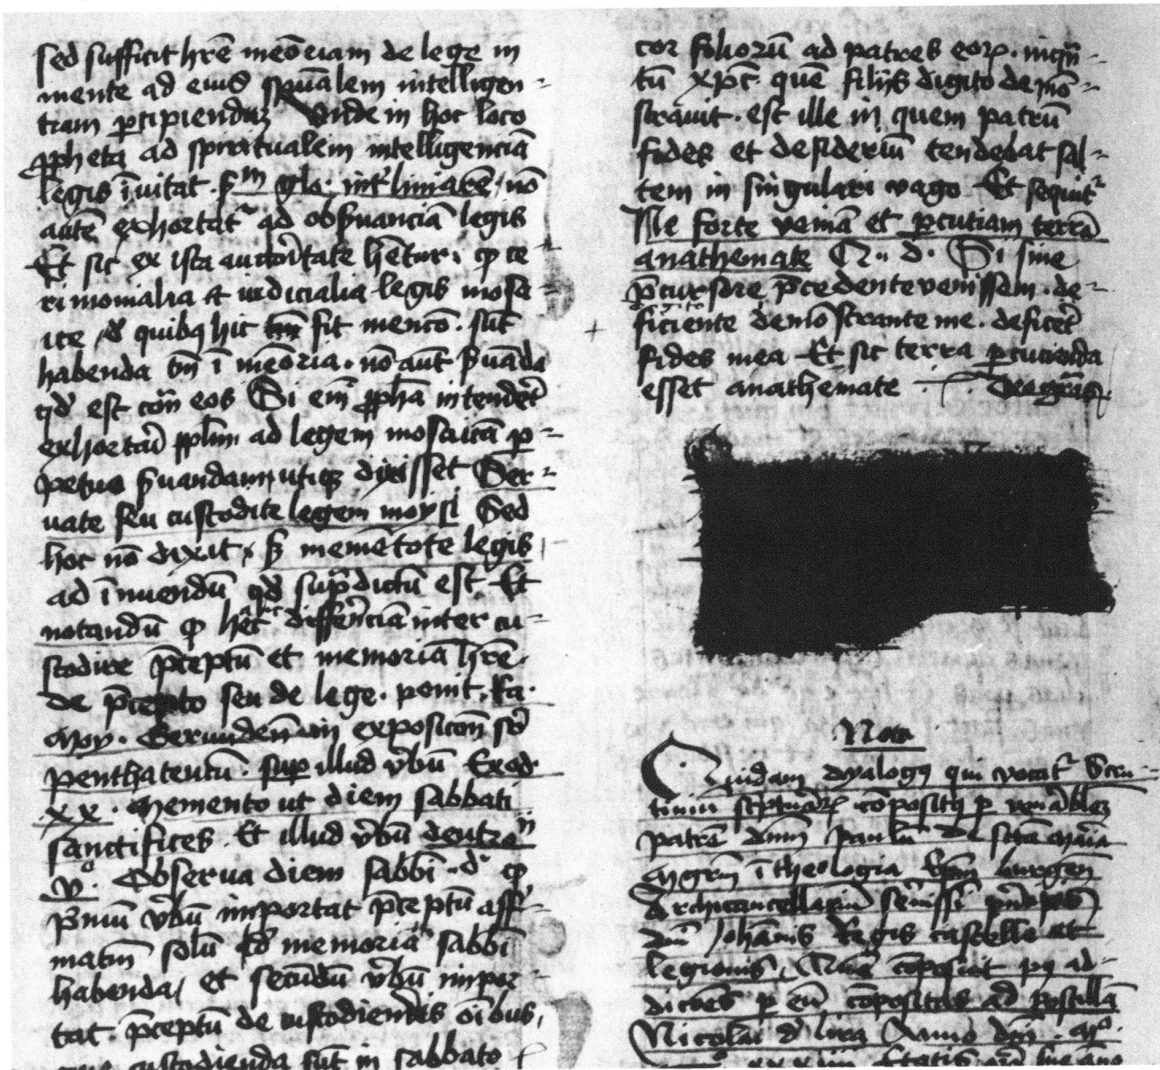 sed sufficit hr̄e meōriam de lege in
mente ad eius sp̄ualem intelligen-
tiam p̱cipiendaʒ Unde in hoc loco
ꝓpheta ad spiritualem intelligenciā
legis īuitat. sꝫm glo. int̄liniarē, nō
autē exhortat̄ ad obẜuanciā legis
Et sic ex ista auctoritate hētur, ꝙ ce
rimonialia et iudicialia legis mosa
ice, de quibꝯ hic fit mencō. sūt
habenda tm̄ ī meōria. nō aūt ẜuāda
qd̄ est cont̄ eos Si em̄ ꝓpha intenderet
exhortari pplm̄ ad legem mosaicā ꝑ-
petuo ẜuandam, utiqꝫ dixisset Ser-
uate seu custodite legem moysi Sed
hoc nō dixit, sꝫ memētote legis
ad īnuendū qd̄ sup̄dictū est Et
notandū ꝙ hāc differēciā inter cu-
stodire p̄ceptū et memoriā hr̄e
de p̄cepto seu de lege. ponit. Ra.
Moy. Gerundeñ. in exposicōn sr̄
penthateucū. sup̱ illud v̄bū Exod.
xx. Memento ut diem sabbati
sanctifices. Et illud v̄bū deutro
v. Obserua diem sabbi .d. ꝙ
p̄mū v̄bū importat p̄ceptū aff-
matiū solū de memoriā sabbi
habenda, et secūdū v̄bū impor-
tat p̄ceptū de custodiendis oībus,
que custodienda sūt in sabbato
cor filiorū ad patres eoꝝ. inqn̄-
tū xp̄c. quē filijs digito demō-
strauit. est ille in quem patrū
fides et desideriū tendebat sal-
tem in singulari vago Et sequit̄
Ne forte veniā et ꝑcutiam terrā
anathemate Q. d. Si sine
p̄cursore p̄cedente venissem. de-
ficiente digito demōstrante me. deficeret
fides mea Et sic terra ꝑcucienda
esset anathemate Deo gr̄as
Nota
Quidam dyalogꝯ qui vocat̄ Scru-
tiniū sc̄ptuarꝝ cōpositꝯ ꝑ ven̄ablez
patrē dnm̄ Paulū de sc̄ta maria
Mgrm̄ ī theologia Ep̄m burgeñ
Archicancellariū sēnissi p̄ncipis
dn̄i Johānis Regis castelle et
legionis, Quē cōposuit pꝯ ad-
dicōes ꝑ eū cōpositas ad postillā
Nicolai d̄ lira Anno dn̄i. Mº.